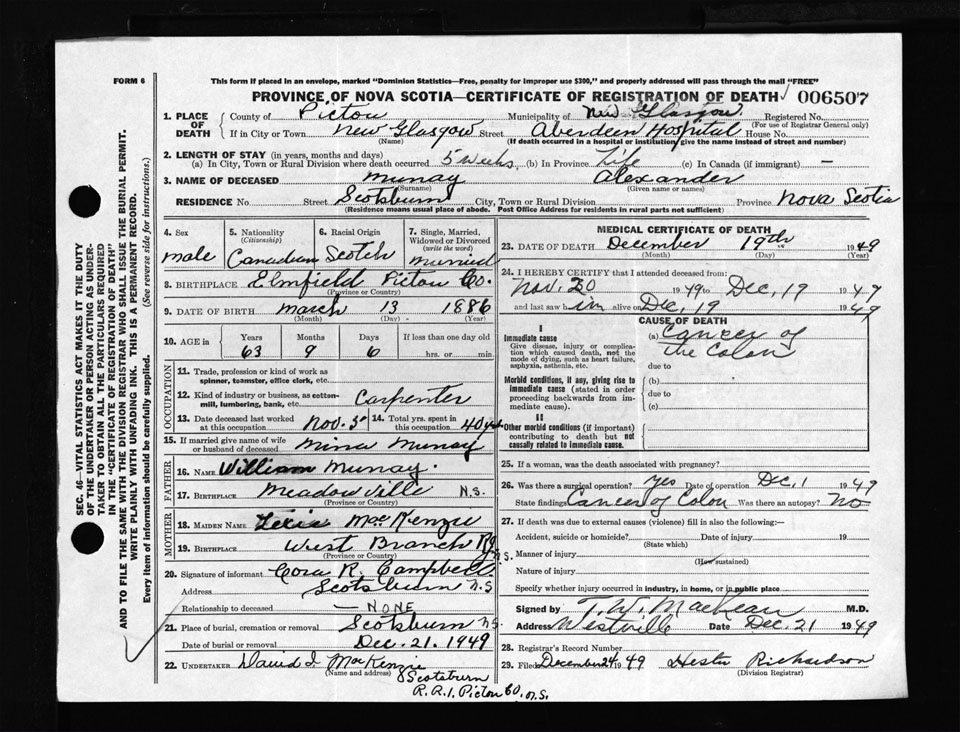 FORM 6
This form if placed in an envelope, marked "Dominion Statistics—Free, penalty for improper use $300," and properly addressed will pass through the mail "FREE"
PROVINCE OF NOVA SCOTIA—CERTIFICATE OF REGISTRATION OF DEATH 006507
1. PLACE OF DEATH
County of Pictou Municipality of New Glasgow Registered No.
(For use of Registrar General only)
If in City or Town New Glasgow Street Aberdeen Hospital House No.
(Name) (If death occurred in a hospital or institution, give the name instead of street and number)
2. LENGTH OF STAY (in years, months and days)
(a) In City, Town or Rural Division where death occurred 5 weeks (b) In Province Life (c) In Canada (if immigrant) —
3. NAME OF DECEASED Murray Alexander
(Surname) (Given name or names)
RESIDENCE No. Street Scotsburn City, Town or Rural Division Province Nova Scotia
(Residence means usual place of abode. Post Office Address for residents in rural parts not sufficient)
4. Sex 5. Nationality (Citizenship) 6. Racial Origin 7. Single, Married, Widowed or Divorced (write the word)
male Canadian Scotch Married
8. BIRTHPLACE Elmfield Pictou Co.
(Province or Country)
9. DATE OF BIRTH March 13 1886
(Month) (Day) (Year)
10. AGE in Years Months Days If less than one day old
63 9 6 hrs. or min.
OCCUPATION
11. Trade, profession or kind of work as spinner, teamster, office clerk, etc.
12. Kind of industry or business, as cotton-mill, lumbering, bank, etc. Carpenter
13. Date deceased last worked at this occupation Nov. 5 14. Total yrs. spent in this occupation 40 yrs
15. If married give name of wife or husband of deceased Mina Murray
FATHER
16. NAME William Murray.
17. BIRTHPLACE Meadowville N.S.
(Province or Country)
MOTHER
18. MAIDEN NAME Lexie MacKenzie
19. BIRTHPLACE West Branch N.S.
(Province or Country)
20. Signature of informant Cora R. Campbell
Address Scotsburn N.S
Relationship to deceased — NONE
21. Place of burial, cremation or removal Scotsburn N.S.
Date of burial or removal Dec. 21. 1949
22. UNDERTAKER David I. MacKenzie
(Name and address) Scotsburn
R.R.1. Pictou Co. N.S.
MEDICAL CERTIFICATE OF DEATH
23. DATE OF DEATH December 19th 1949
(Month) (Day) (Year)
24. I HEREBY CERTIFY that I attended deceased from:
Nov. 20 1949 to Dec. 19 1947
and last saw him alive on Dec. 19 1949
CAUSE OF DEATH
I
Immediate cause
Give disease, injury or complication which caused death, not the mode of dying, such as heart failure, asphyxia, asthenia, etc.
(a) Cancer of
the Colon
due to
Morbid conditions, if any, giving rise to immediate cause (stated in order proceeding backwards from immediate cause).
(b)
due to
(c)
II
Other morbid conditions (if important) contributing to death but not causally related to immediate cause.
25. If a woman, was the death associated with pregnancy?
26. Was there a surgical operation? yes Date of operation Dec. 1 1949
State findings Cancer of Colon Was there an autopsy? No
27. If death was due to external causes (violence) fill in also the following:—
Accident, suicide or homicide? Date of injury 19
(State which)
Manner of injury
(How sustained)
Nature of injury
Specify whether injury occurred in industry, in home, or in public place
Signed by T. W. MacLean M.D.
Address Westville Date Dec. 21 1949
28. Registrar's Record Number
29. Filed December 24 1949 Hester Richardson
(Division Registrar)
SEC. 46—VITAL STATISTICS ACT MAKES IT THE DUTY
OF THE UNDERTAKER OR PERSON ACTING AS UNDER-
TAKER TO OBTAIN ALL THE PARTICULARS REQUIRED
IN THE "CERTIFICATE OF REGISTRATION OF DEATH"
AND TO FILE THE SAME WITH THE DIVISION REGISTRAR WHO SHALL ISSUE THE BURIAL PERMIT.
WRITE PLAINLY WITH UNFADING INK. THIS IS A PERMANENT RECORD.
Every item of information should be carefully supplied. (See reverse side for instructions.)